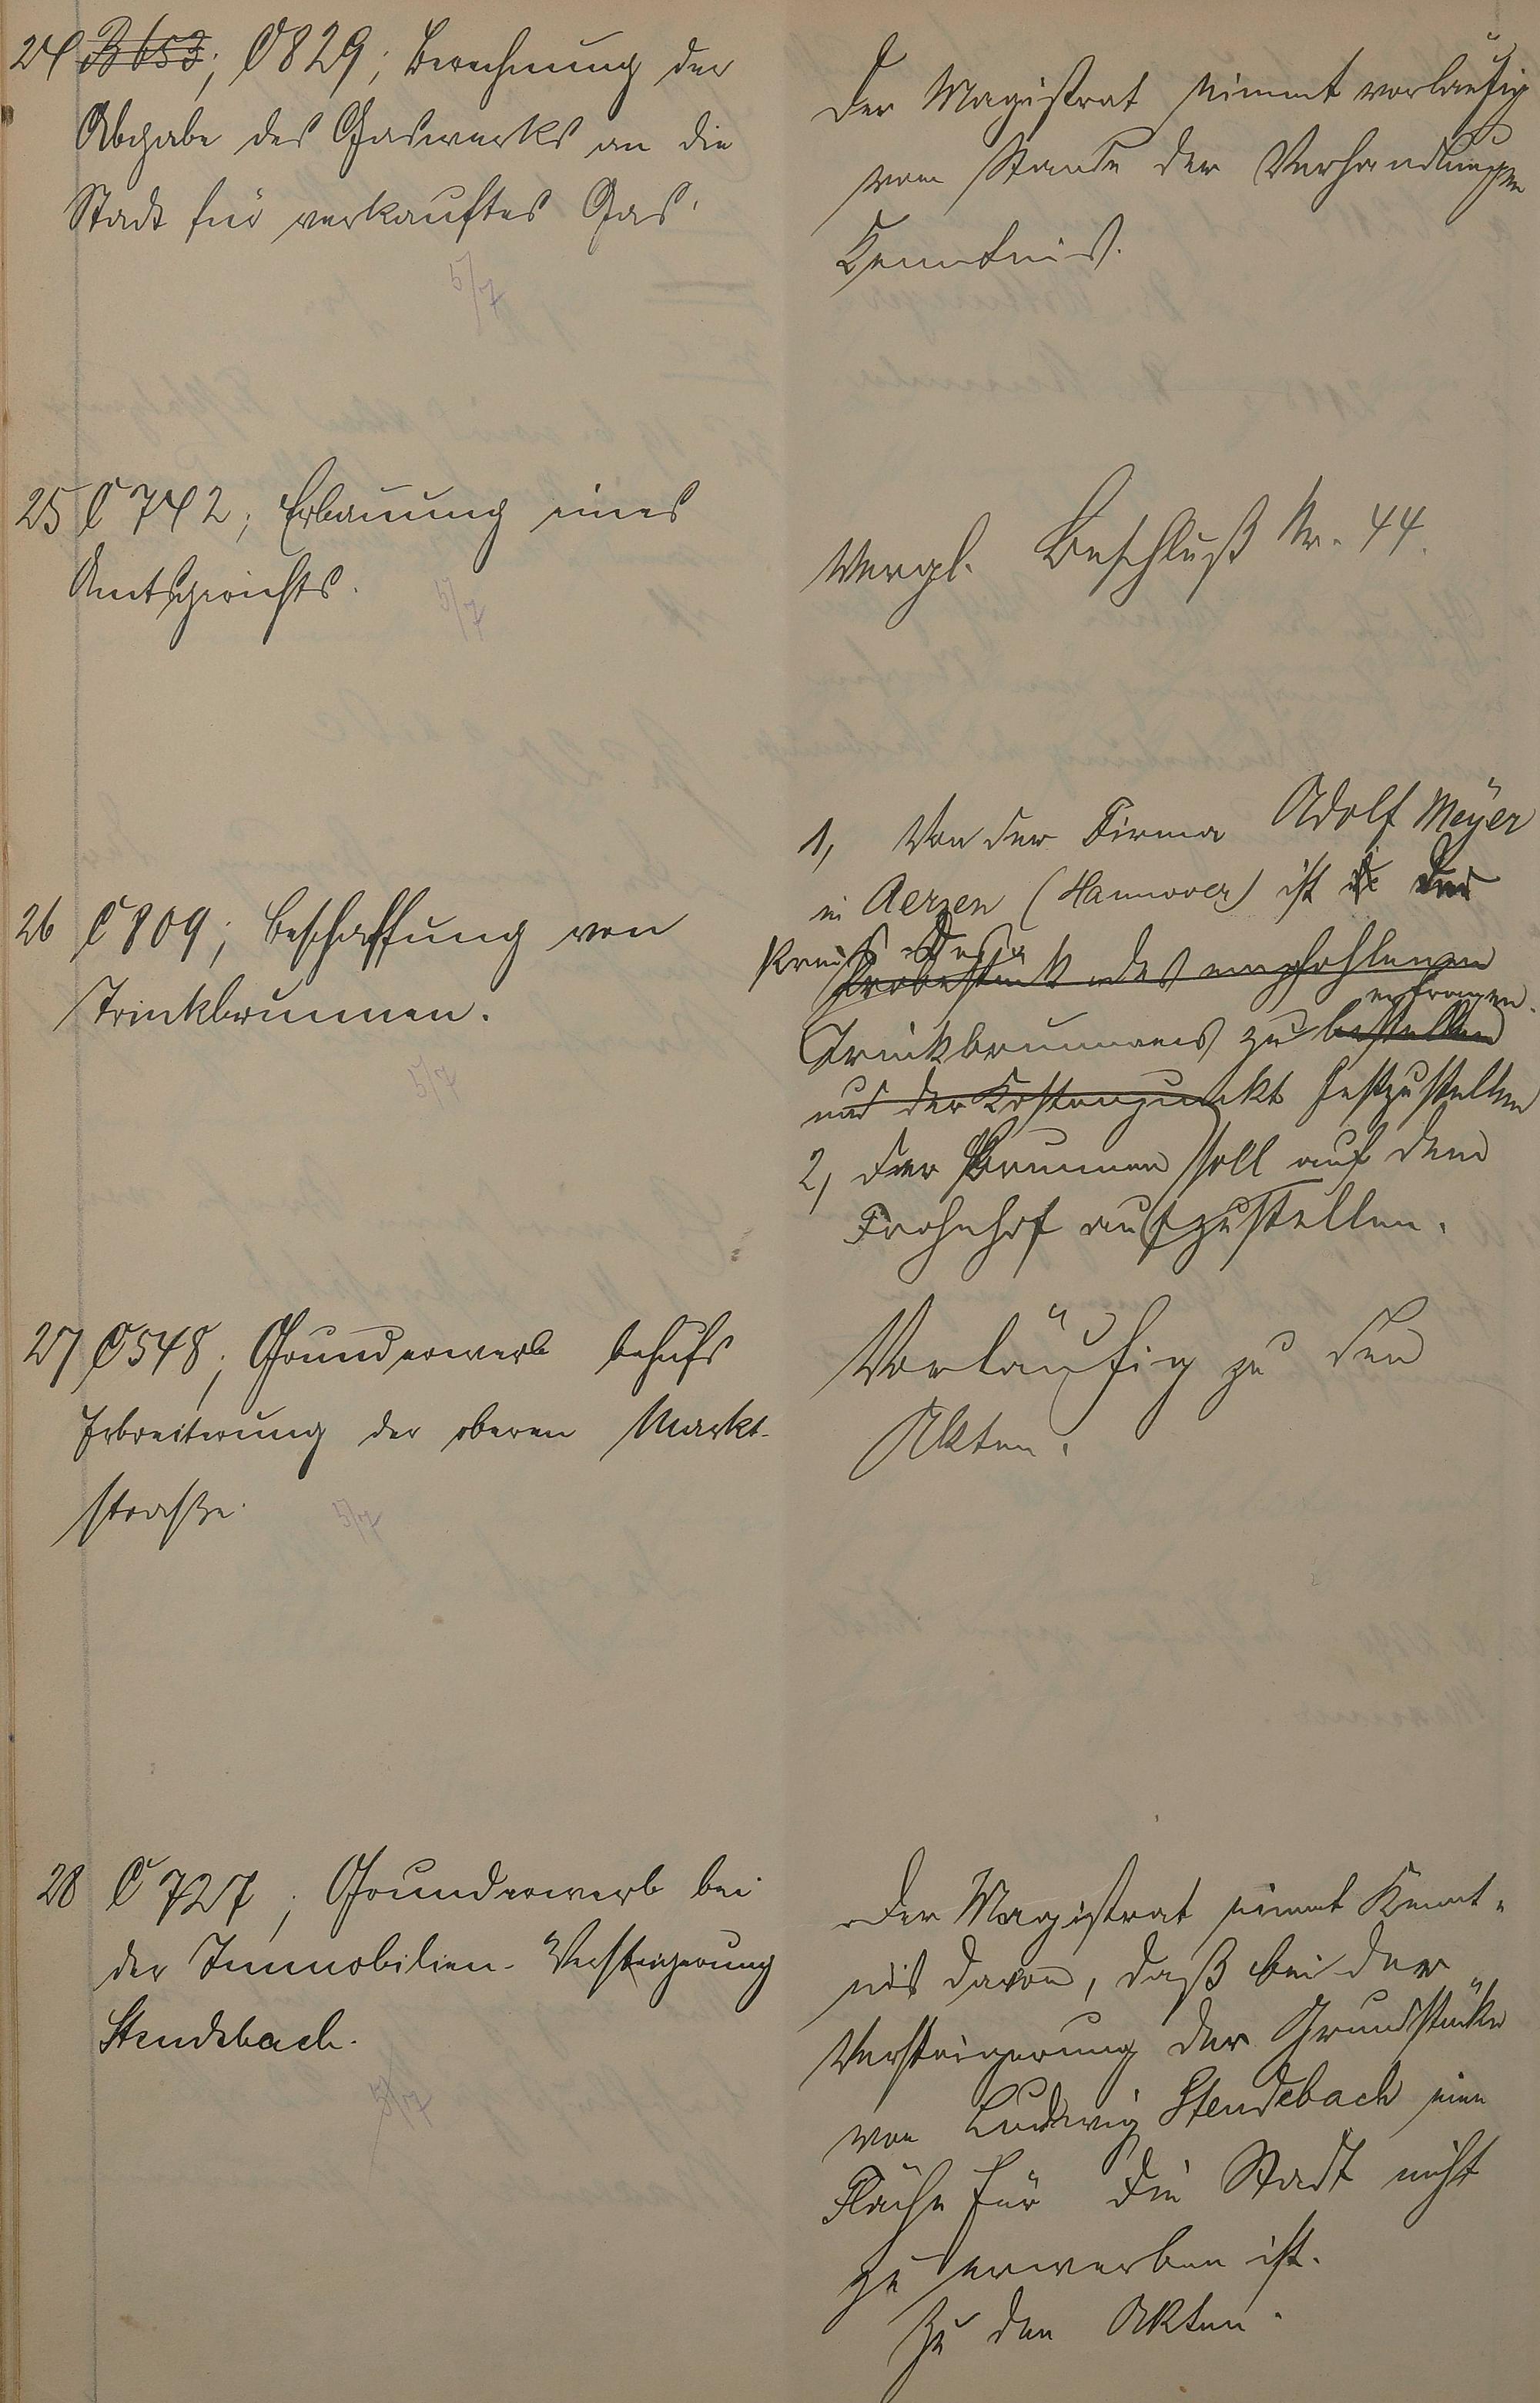 24 B 653; C 829; Berechnung der
Abgabe des Gaswerks an die
Stadt für verkauftes Gas.
5/7
Der Magistrat nimmt vorläufig
vom Stande der Verhandlungen
Kenntnis.
25 C 742; Erbauung eines
Amtsgerichts.
5/7
Vergl. Beschluß Nr. 44.
26 C 809; Beschaffung von
Trinkbrunnen.
5/7
1, Von der Firma Adolf Meyer
in Aerzen (Hannover) ist der
Preis des
Probestück des empfohlenen
erfragen.
Trinkbrunnens zu bestellen
und der Kostenpunkt festzustellen
2, Der Brunnen soll auf dem
Frohnhof aufzustellen.
27 C 548; Grunderwerb behufs
Erbreiterung der oberen Markt-
straße.
5/7
Vorläufig zu den
Akten.
28 C 727; Grunderwerb bei
der Immobilien-Versteigerung
Stendebach.
5/7
Der Magistrat nimmt Kennt-
nis davon, daß bei der
Versteigerung der Grundstücke
von Ludwig Stendebach eine
Fläche für die Stadt nicht
zu erwerben ist.
Zu den Akten.